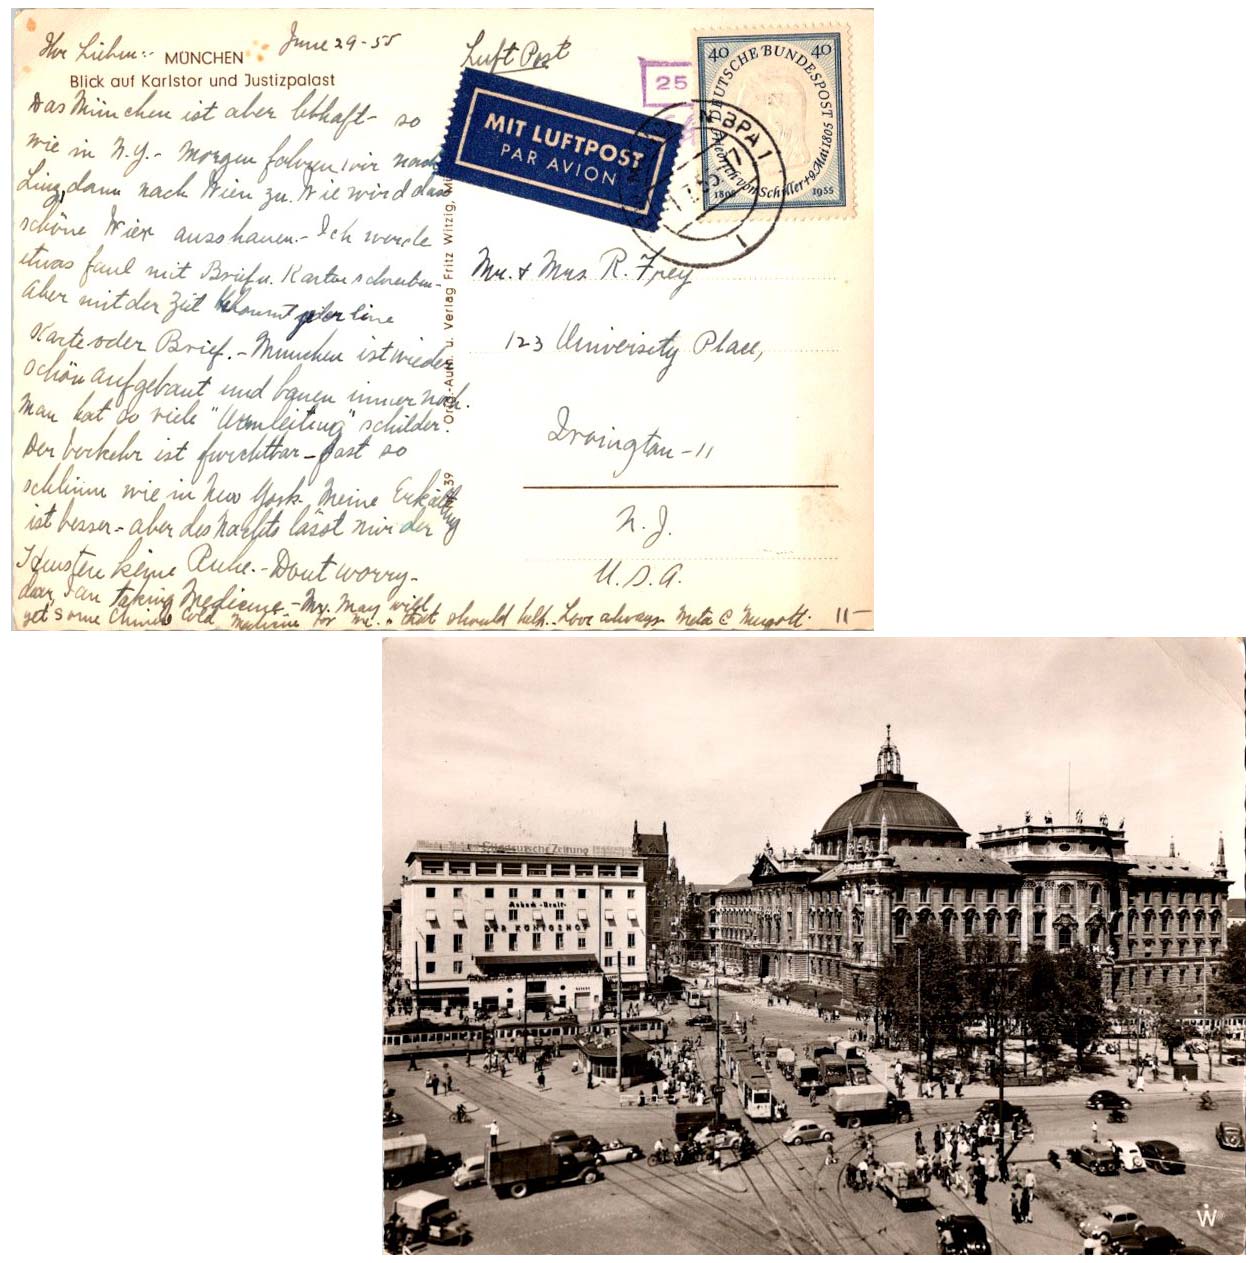 Ihr Lieben:- June 29-55
MÜNCHEN
Blick auf Karlstor und Justizpalast
Das München ist aber lebhaft- so
wie in N.Y.- Morgen fahren wir nach
Linz, dann nach Wien zu. Wie wird das
schöne Wien ausschauen.- Ich werde
etwas faul mit Brief u. Karten schreiben-
aber mit der Zeit kommt jeder eine
Karte oder Brief.- München ist wieder
schön aufgebaut und bauen immer noch.
Man hat so viele "Umleitung" schilder.
Der Verkehr ist furchtbar- fast so
schlimm wie in New York. Meine Erkältung
ist besser- aber des Nachts lässt mir der
Husten keine Ruhe.- Dont worry-
dear, I am taking Medicine- Mr. May will
get some Chinese Cold Medicine for me.- that should help. Love always Meta &
11-
Luft Post
MIT LUFTPOST
PAR AVION
25
BPA 1
40 DEUTSCHE BUNDESPOST 40
Friedrich von Schiller + 9. Mai 1805
1805 1955
Mr. & Mrs R. Frey
123 University Place,
Irvington-11
N.J.
U.S.A.
u. Verlag Fritz Witzig,
39
Süddeutsche Zeitung
Asbach-Uralt
DER KÖNIGSHOF
W